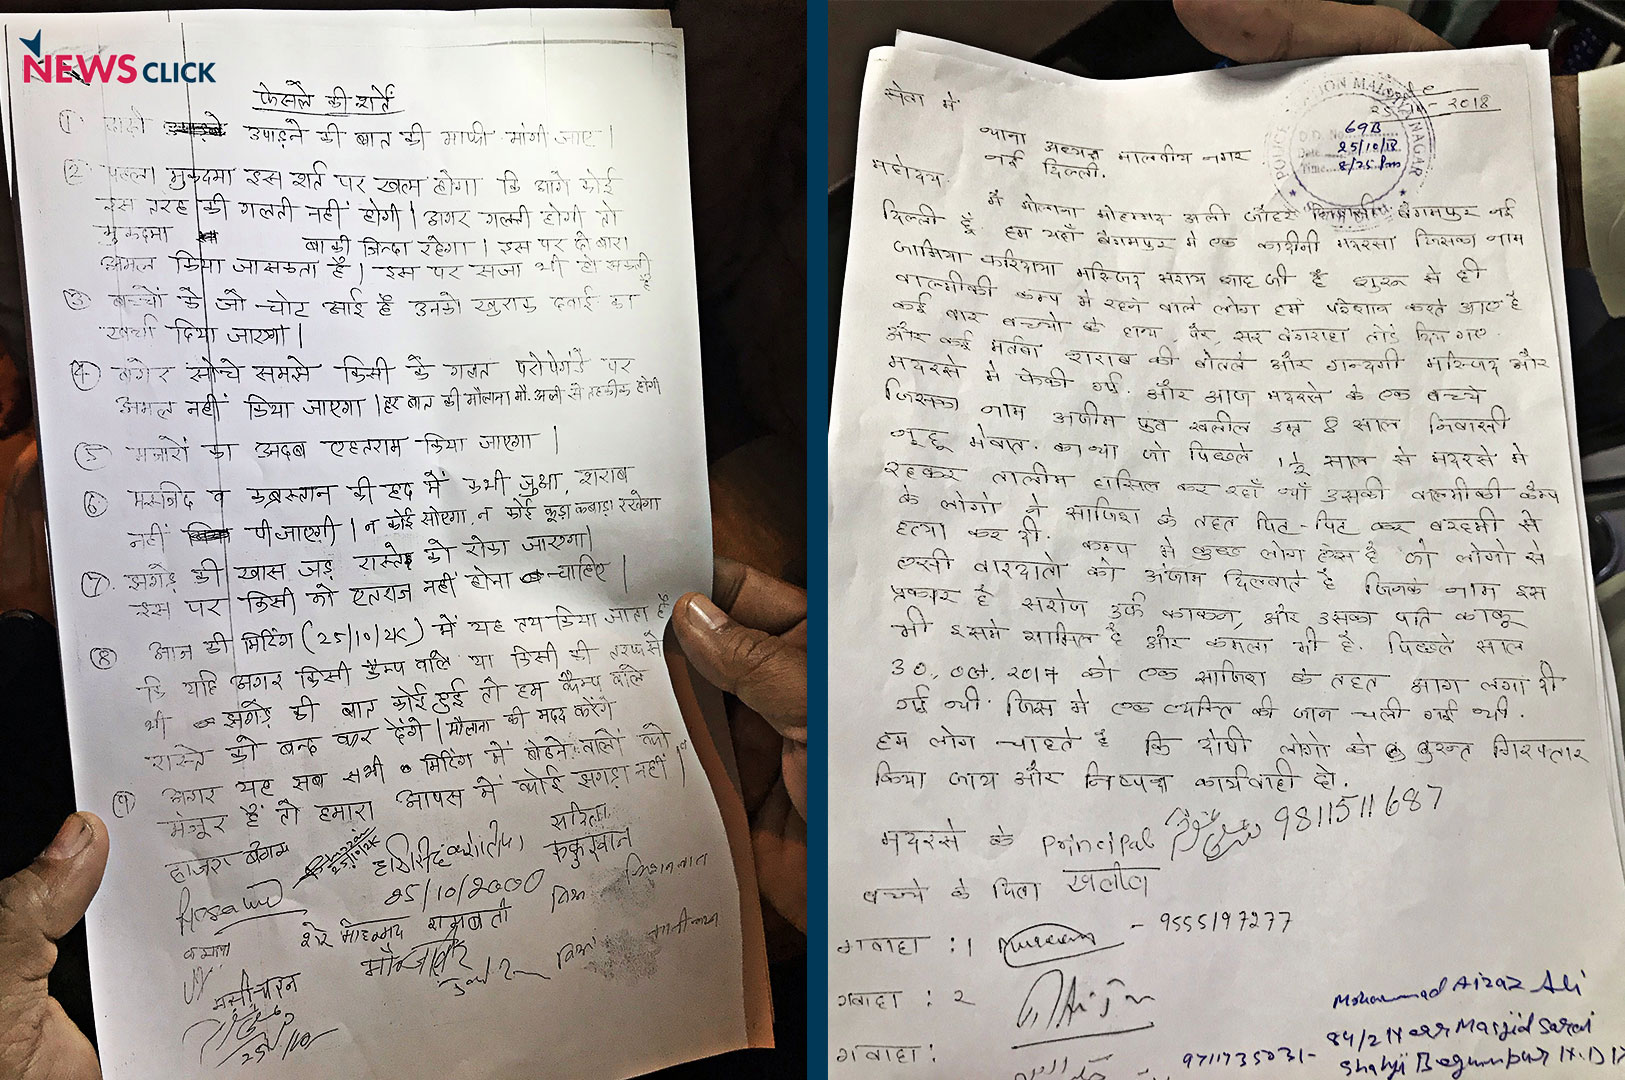 NEWSCLICK
फेसले की शर्तें
① उखाड़ने की बात की माफी मांगी जाए।
② पहला मुकदमा इस शर्त पर खत्म होगा कि आगे कोई
इस तरह की गलती नहीं होगी। अगर गलती होगी तो
मुकदमा बाकी जिन्दा रहेगा। इस पर दोबारा
अमल किया जा सकता है। इस पर सजा भी हो सकती है
③ बच्चों के जो चोट आई है उनको खुराक दवाई का
खर्चा दिया जाएगा।
④ बगैर सोचे समझे किसी के गलत परोपेगंडे पर
अमल नहीं किया जाएगा। हर बात की मौलाना मौ. अली से तहकीक होगी
⑤ मजारों का अदब एहतराम किया जाएगा।
⑥ मस्जिद व कब्रस्तान की हद में कभी जुआ, शराब
नहीं पी जाएगी। न कोई सोएगा, न कोई कूड़ा कबाड़ा रखेगा
⑦ झगड़े की खास जड़ रास्ते को रोका जाएगा।
इस पर किसी को एतराज नहीं होना चाहिए।
⑧ आज की मिटिंग (25/10/18) में यह तय किया जाता है
कि यदि अगर किसी कैम्प वाले या किसी की तरफ से
भी झगड़े की बात कोई हुई तो हम कैम्प वाले
रास्ते को बन्द कर देंगे। मौलाना की मदद करेंगे
⑨ अगर यह सब सभी मिटिंग में बैठने वालों को
मंजूर है तो हमारा आपस में कोई झगड़ा नहीं।
हाजरा बेगम सरिता
25/10/2000
शेर मोहम्मद रामबती
कमला
25/10/
सेवा में
2018
POLICE STATION MALVIYA NAGAR
D.D. No. 69B
Date 25/10/18
Time 8/25 Pm
थाना अध्यक्ष मालवीय नगर
नई दिल्ली.
महोदय.
मैं मौलाना मोहम्मद अली जौहर निवासी बेगमपुर नई
दिल्ली हूँ. हम यहाँ बेगमपुर में एक कादीमी मदरसा जिसका नाम
जामिया फरिदीया मस्जिद सराय शाह जी है शुरू से ही
वाल्मीकी कम्प में रहने वाले लोग हमें परेशान करते आए है
कई बार बच्चो के हाथ, पैर, सर वगैराहा तोड़ दिए गए.
और कई मर्तबा शराब की बोतले और गन्दगी मस्जिद और
मदरसे में फेंकी गई. और आज मदरसे के एक बच्चे
जिसका नाम अजीम पुत्र खलील उम्र 8 साल निवासी
नूहू मेवात. का था जो पिछले 1½ साल से मदरसे में
रहकर तालीम हासिल कर रहाँ थाँ उसकी वालमीकी कैम्प
के लोगो ने साजिश के तहत पिट-पिट कर बेरहमी से
हत्या कर दी. कम्प में कुछ लोग ऐसे है जो लोगो से
ऐसी वारदातो को अंजाम दिलवाते है जिनके नाम इस
प्रकार है सरोज उर्फ काकन, और उसका पति काकू
भी इसमे शामिल है और कमला भी है. पिछले साल
30, oct, 2017 को एक साजिश के तहत आग लगा दी
गई थी. जिस में एक व्यक्ति की जान चली गई थी.
हम लोग चाहते है कि दोषी लोगो को तुरन्त गिरफ्तार
किया जाय और निष्पक्ष कार्यवाही हो.
मदरसे के Principal 9811511687
बच्चे के पिता खलील
गवाहा : 1 - 9555197277
गवाहा : 2
Mohammad Aizaz Ali
84/2 Near Masjid Sarai
गवाहा : 9711735031- Shahji Begumpur N.D.17